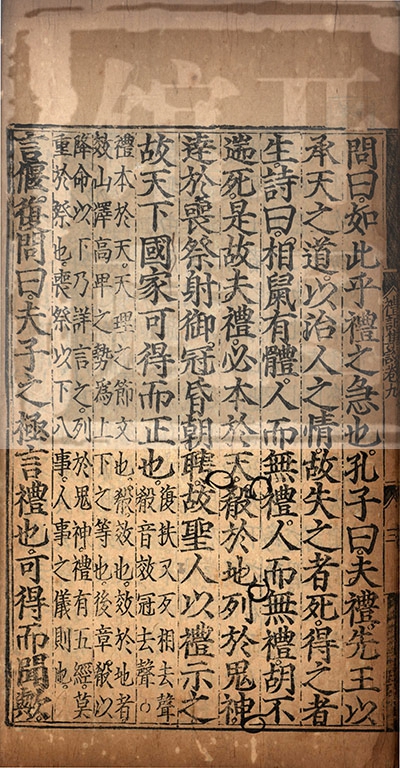 禮記集說卷九
三
問曰。如此乎禮之急也。孔子曰。夫禮。先王以
承天之道。以治人之情。故失之者死。得之者
生。詩曰。相鼠有體。人而無禮。人而無禮。胡不
遄死。是故夫禮。必本於天。殽於地。列於鬼神。
達於喪祭射御。冠昏朝聘。故聖人以禮示之
故天下國家可得而正也。
復扶又反相去聲
殽音效冠去聲○
禮本於天。天理之節文也。殽效也。效於地者
效山澤高卑之勢爲上下之等也後章殽以
降命以下乃詳言之。列於鬼神。禮有五經。莫
重於祭也。喪祭以下八事。人事之儀則也。
言偃復問曰。夫子之極言禮也。可得而聞歟。